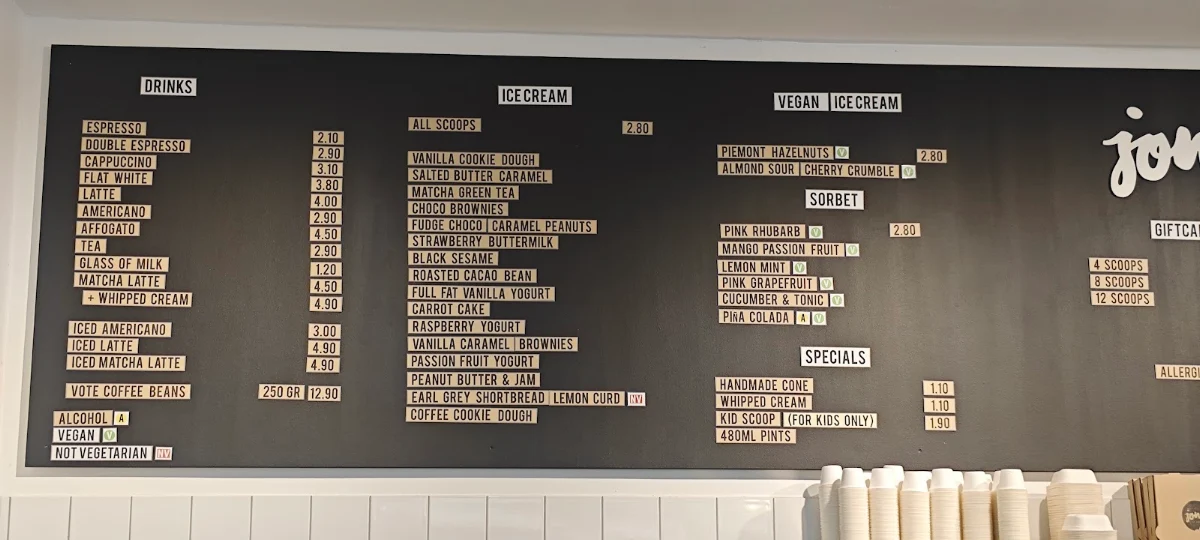 DRINKS
ESPRESSO 2.10
DOUBLE ESPRESSO 2.90
CAPPUCCINO 3.10
FLAT WHITE 3.80
LATTE 4.00
AMERICANO 2.90
AFFOGATO 4.50
TEA 2.90
GLASS OF MILK 1.20
MATCHA LATTE 4.50
+ WHIPPED CREAM 4.90
ICED AMERICANO 3.00
ICED LATTE 4.90
ICED MATCHA LATTE 4.90
VOTE COFFEE BEANS 250 GR 12.90
ALCOHOL A
VEGAN V
NOT VEGETARIAN NV
ICE CREAM
ALL SCOOPS 2.80
VANILLA COOKIE DOUGH
SALTED BUTTER CARAMEL
MATCHA GREEN TEA
CHOCO BROWNIES
FUDGE CHOCO CARAMEL PEANUTS
STRAWBERRY BUTTERMILK
BLACK SESAME
ROASTED CACAO BEAN
FULL FAT VANILLA YOGURT
CARROT CAKE
RASPBERRY YOGURT
VANILLA CARAMEL BROWNIES
PASSION FRUIT YOGURT
PEANUT BUTTER & JAM
EARL GREY SHORTBREAD LEMON CURD NV
COFFEE COOKIE DOUGH
VEGAN ICE CREAM
PIEMONT HAZELNUTS V 2.80
ALMOND SOUR CHERRY CRUMBLE V
SORBET
PINK RHUBARB V 2.80
MANGO PASSION FRUIT V
LEMON MINT V
PINK GRAPEFRUIT V
CUCUMBER & TONIC V
PIñA COLADA A V
SPECIALS
HANDMADE CONE 1.10
WHIPPED CREAM 1.10
KID SCOOP (FOR KIDS ONLY) 1.90
480ML PINTS
4 SCOOPS
8 SCOOPS
12 SCOOPS